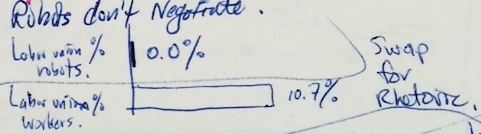 Robots don't Negotiate.
Labor union %
robots.
0.0%
Labor union %
workers.
10.7%
Swap
for
Rhetoric.